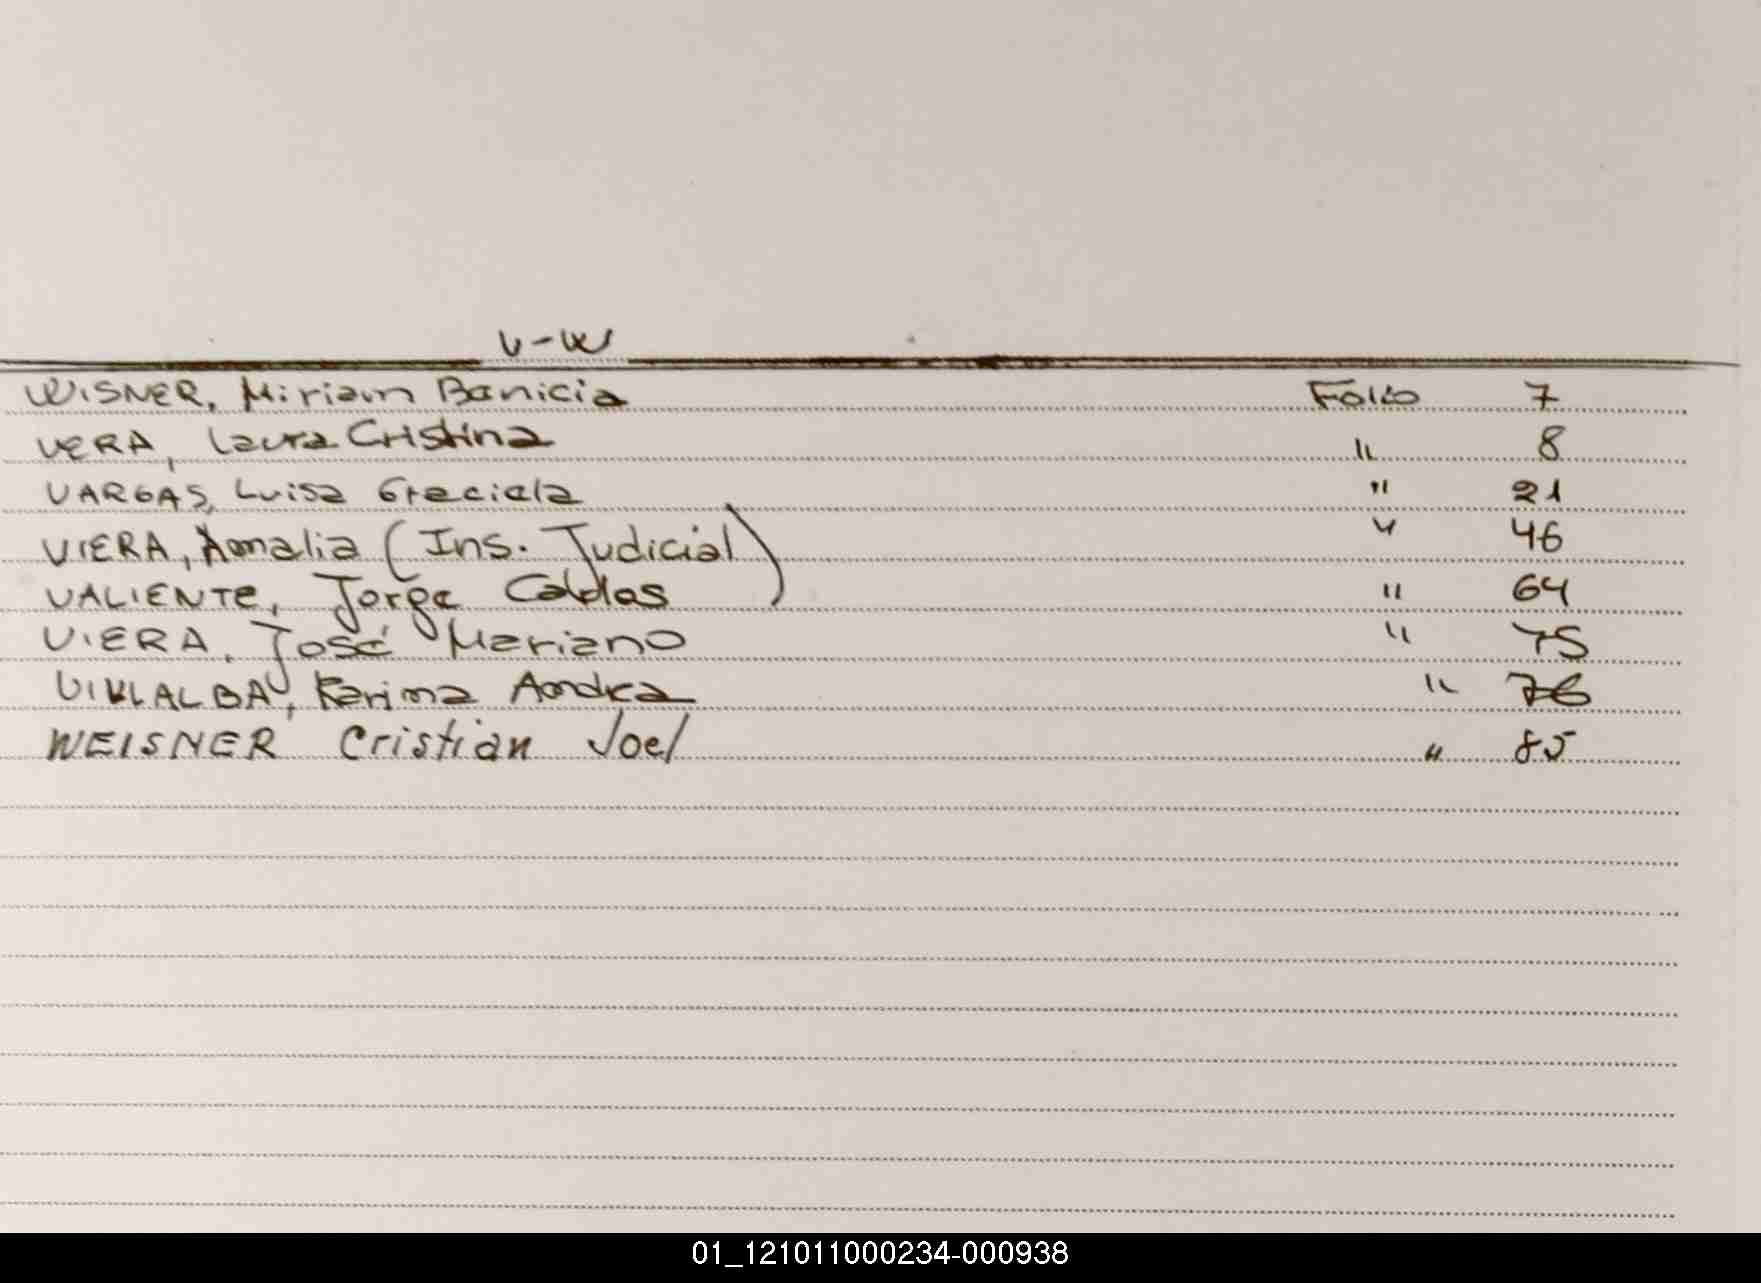 V-W
WISNER, Miriam Banicia Folio 7
VERA, Laura Cristina " 8
VARGAS, Luisa Graciela " 21
VIERA, Amalia (Ins. Judicial) " 46
VALIENTE, Jorge Caldas " 64
VIERA, José Mariano " 75
VILLALBA, Karina Andrea " 76
WEISNER Cristian Joel " 85
01_121011000234-000938